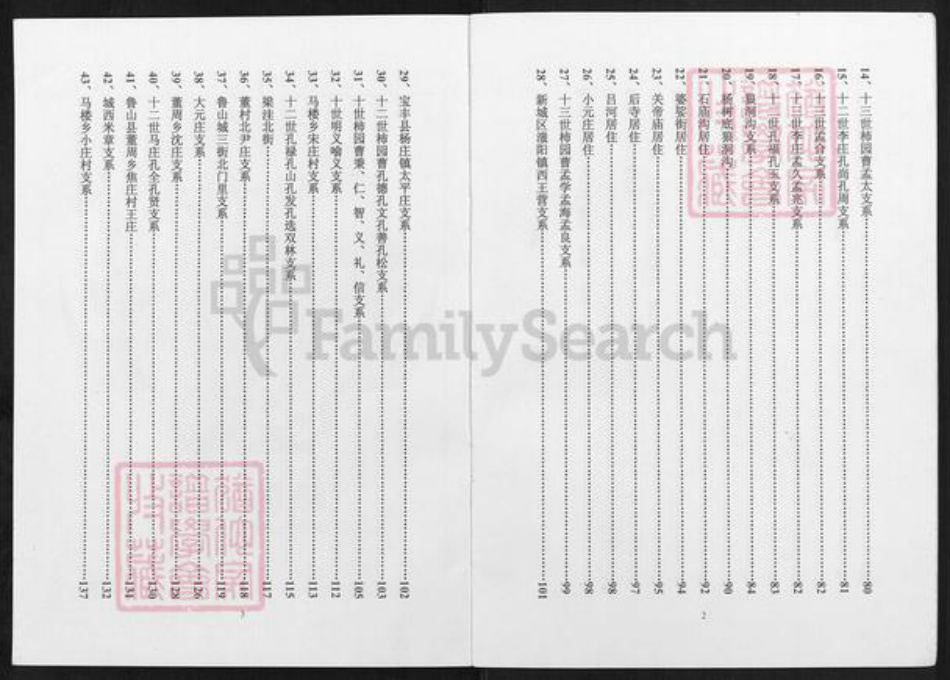 14、十三世柿园曹孟太支系 80
15、十二世李庄孔尚孔周支系 81
16、十三世孟合支系 82
17、十三世李庄孟久孟 支系 82
18、十二世孔福孔玉支系 83
19、狼洞沟支系 84
20、杨树底狼洞沟 90
21、石庙沟居住 92
22、婆娑街居住 94
23、关帝庙居住 95
24、后寺居住 97
25、吕河居住 98
26、小元庄居住 98
27、十三世柿园曹孟学孟海孟良支系 99
28、新城区滍阳镇西王营支系 101
2
29、宝丰县杨庄镇太平庄支系 102
30、十二世柿园曹孔德孔文孔善孔松支系 103
31、十世柿园曹秉、仁、智、义、礼、信支系 105
32、十世明义峰义支系 112
33、马楼乡宋庄村支系 113
34、十二世孔禄孔山孔发孔选双林支系 115
35、梁洼北街 117
36、董村北尹庄支系 118
37、鲁山城三街北门里支系 119
38、大元庄支系 126
39、董周乡沈庄支系 128
40、十二世马庄孔全孔贤支系 130
41、鲁山县董周乡焦庄村王庄 134
42、城西米章支系 132
43、马楼乡小庄村支系 137
3
FamilySearch